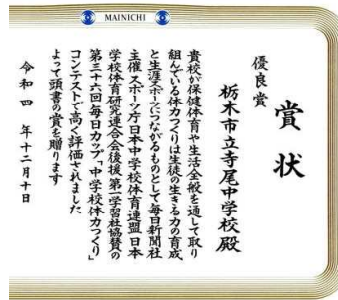 MAINICHI
賞状
優良賞
栃木市立寺尾中学校殿
貴校が保健体育や生活全般を通して取り
組んでいる体力つくりは生徒の生きる力の育成
と生涯スポーツにつながるものとして毎日新聞社
主催 スポーツ庁日本中学校体育連盟 日本
学校体育研究連合会後援 第一学習社協賛の
第三十六回毎日カップ「中学校体力つくり」
コンテストで高く評価されました
よって頭書の賞を贈ります
令和四 年十二月十日